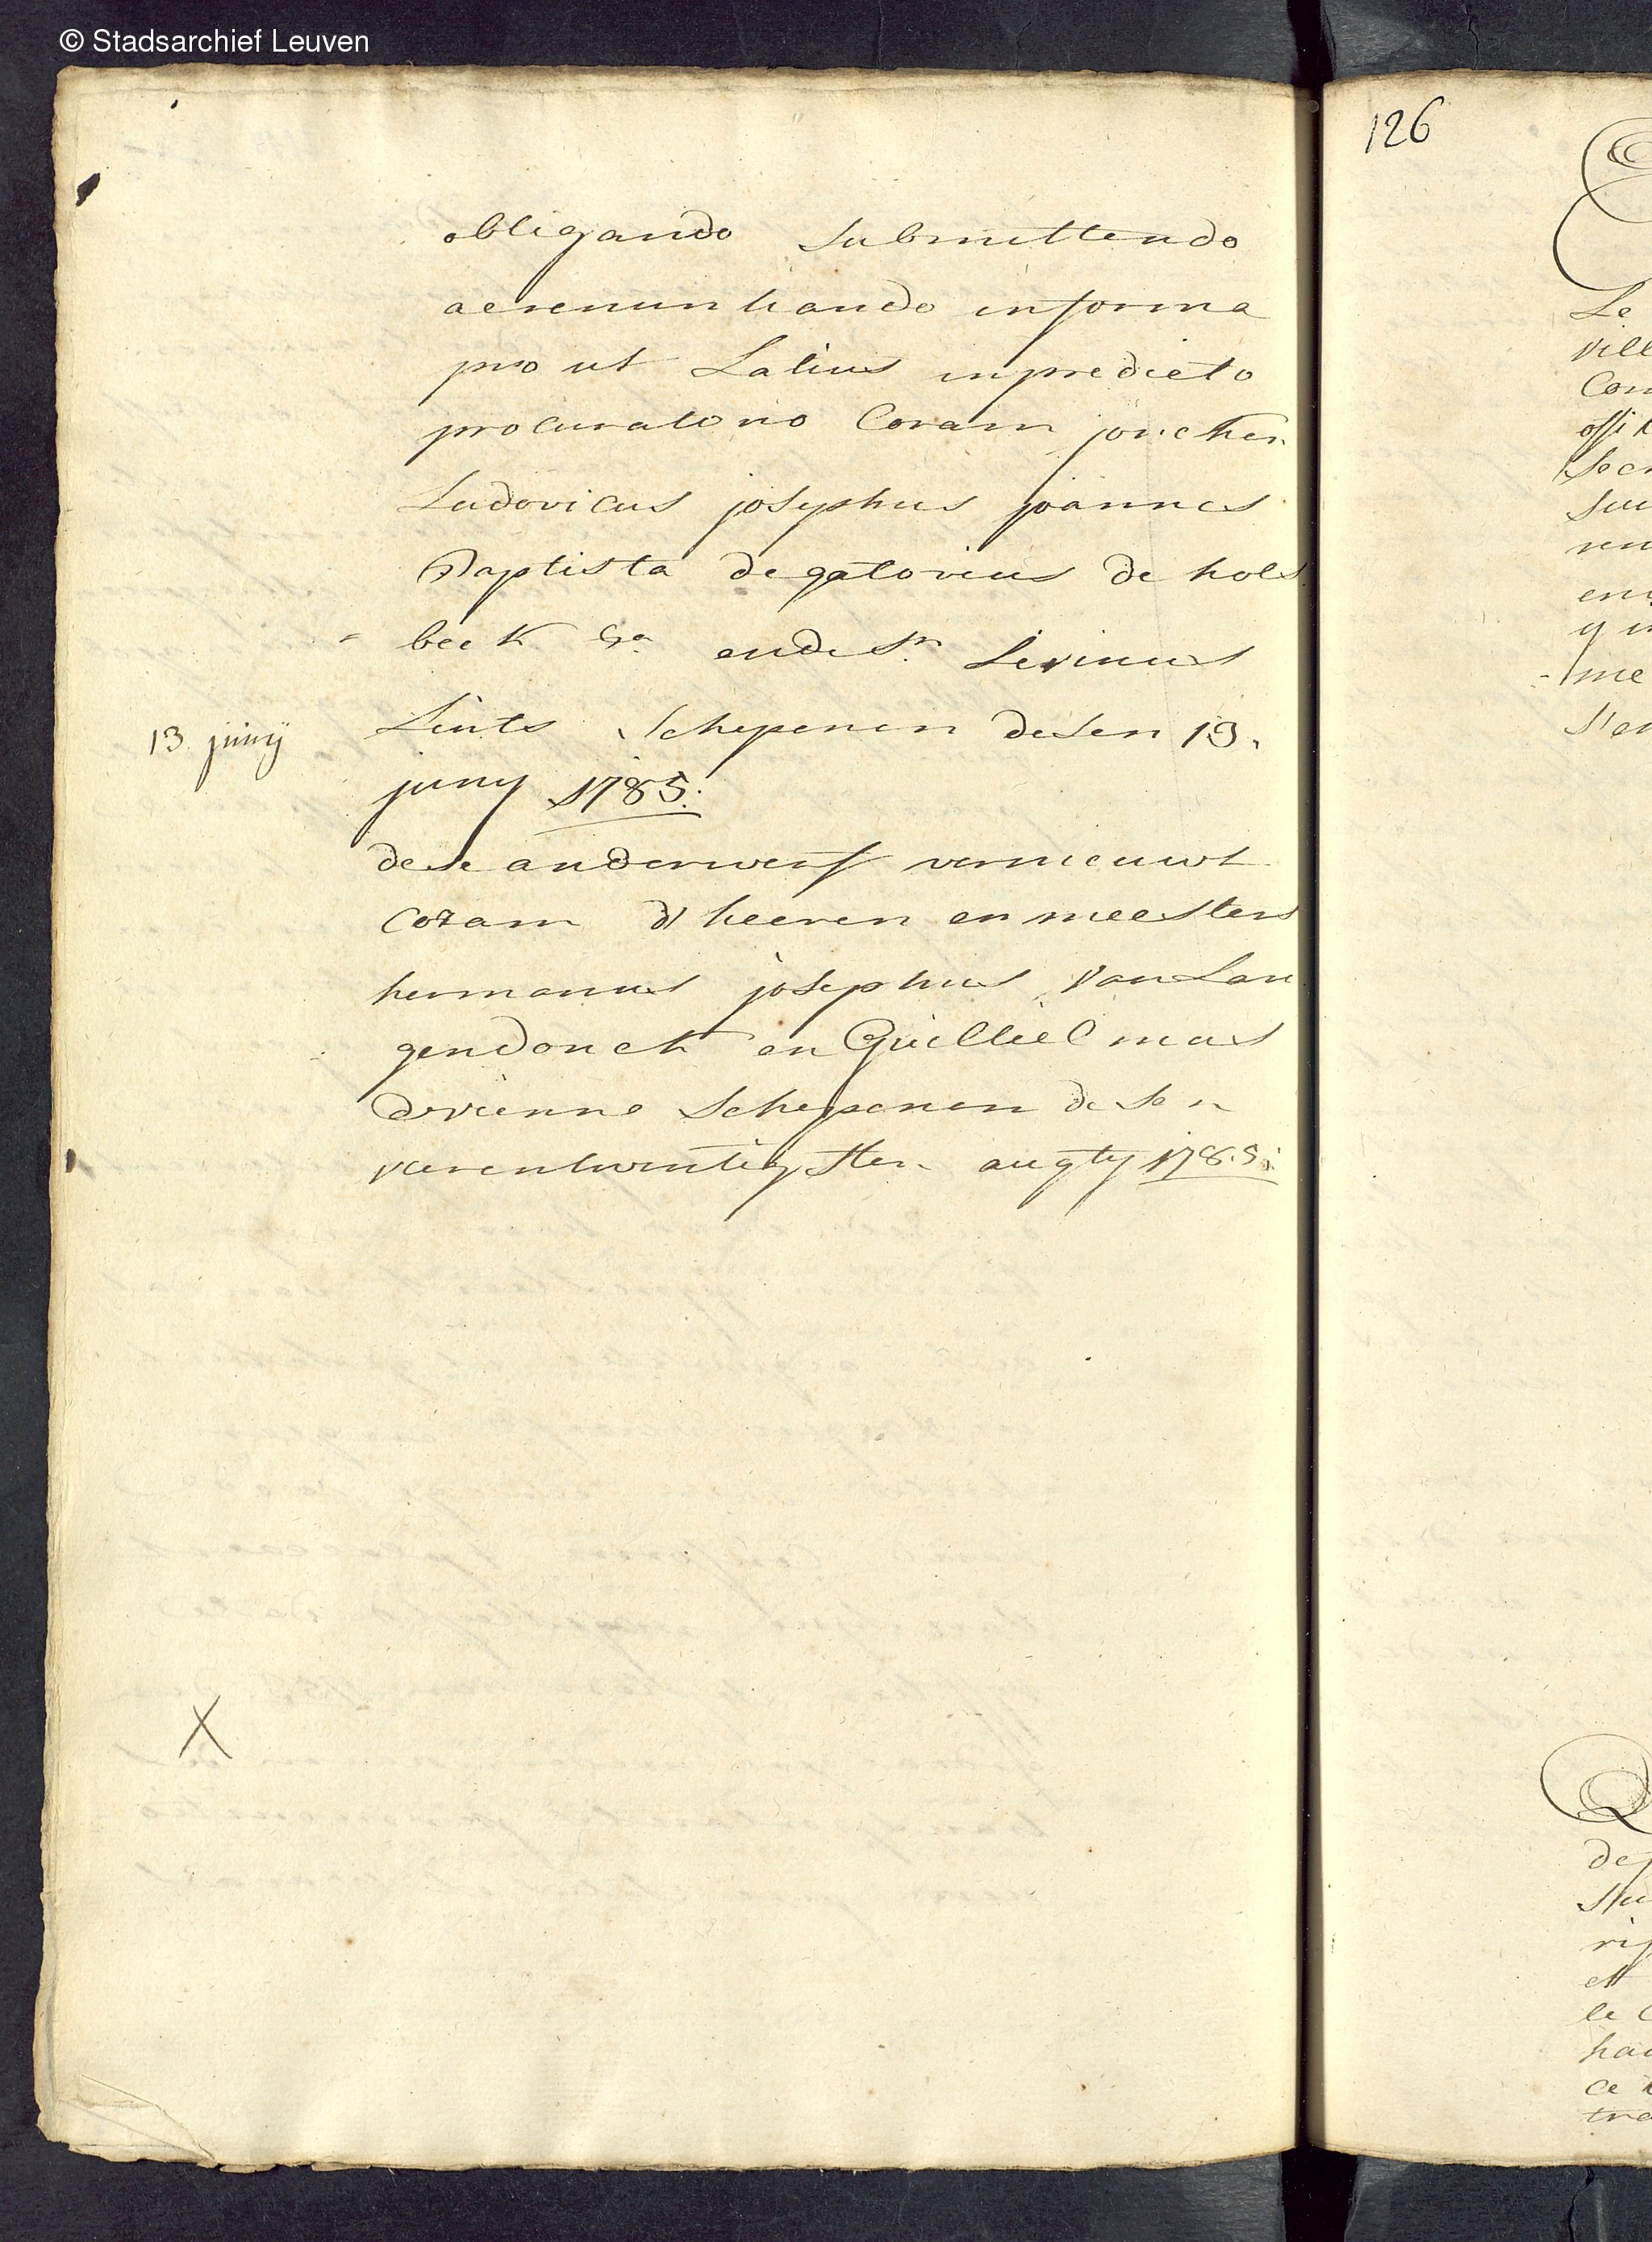 © Stadsarchief Leuven
obligando submittendo
ac renuntiando in forma
pro ut Latius in predicto
procuratorio Coram joncher
Ludovicus josephus joannes
Baptista de gatovieus de hols
beeck &a ende Sr Livinus
Lints Schepenen desen 13.
13 junÿ
juny 1785.
dese anderwerf vernieuwt
Coram d'heeren en meesters
hermanus josephus van Lan
gendonck en Guillielmus
Schepenen desen
vierentwintighsten augty 1785.
X
126
Le
vill
Con
offi
Secr
Sui
ren
en
y
me
s'en
Q
de
Stu
ris
et
le C
hau
ce
tra